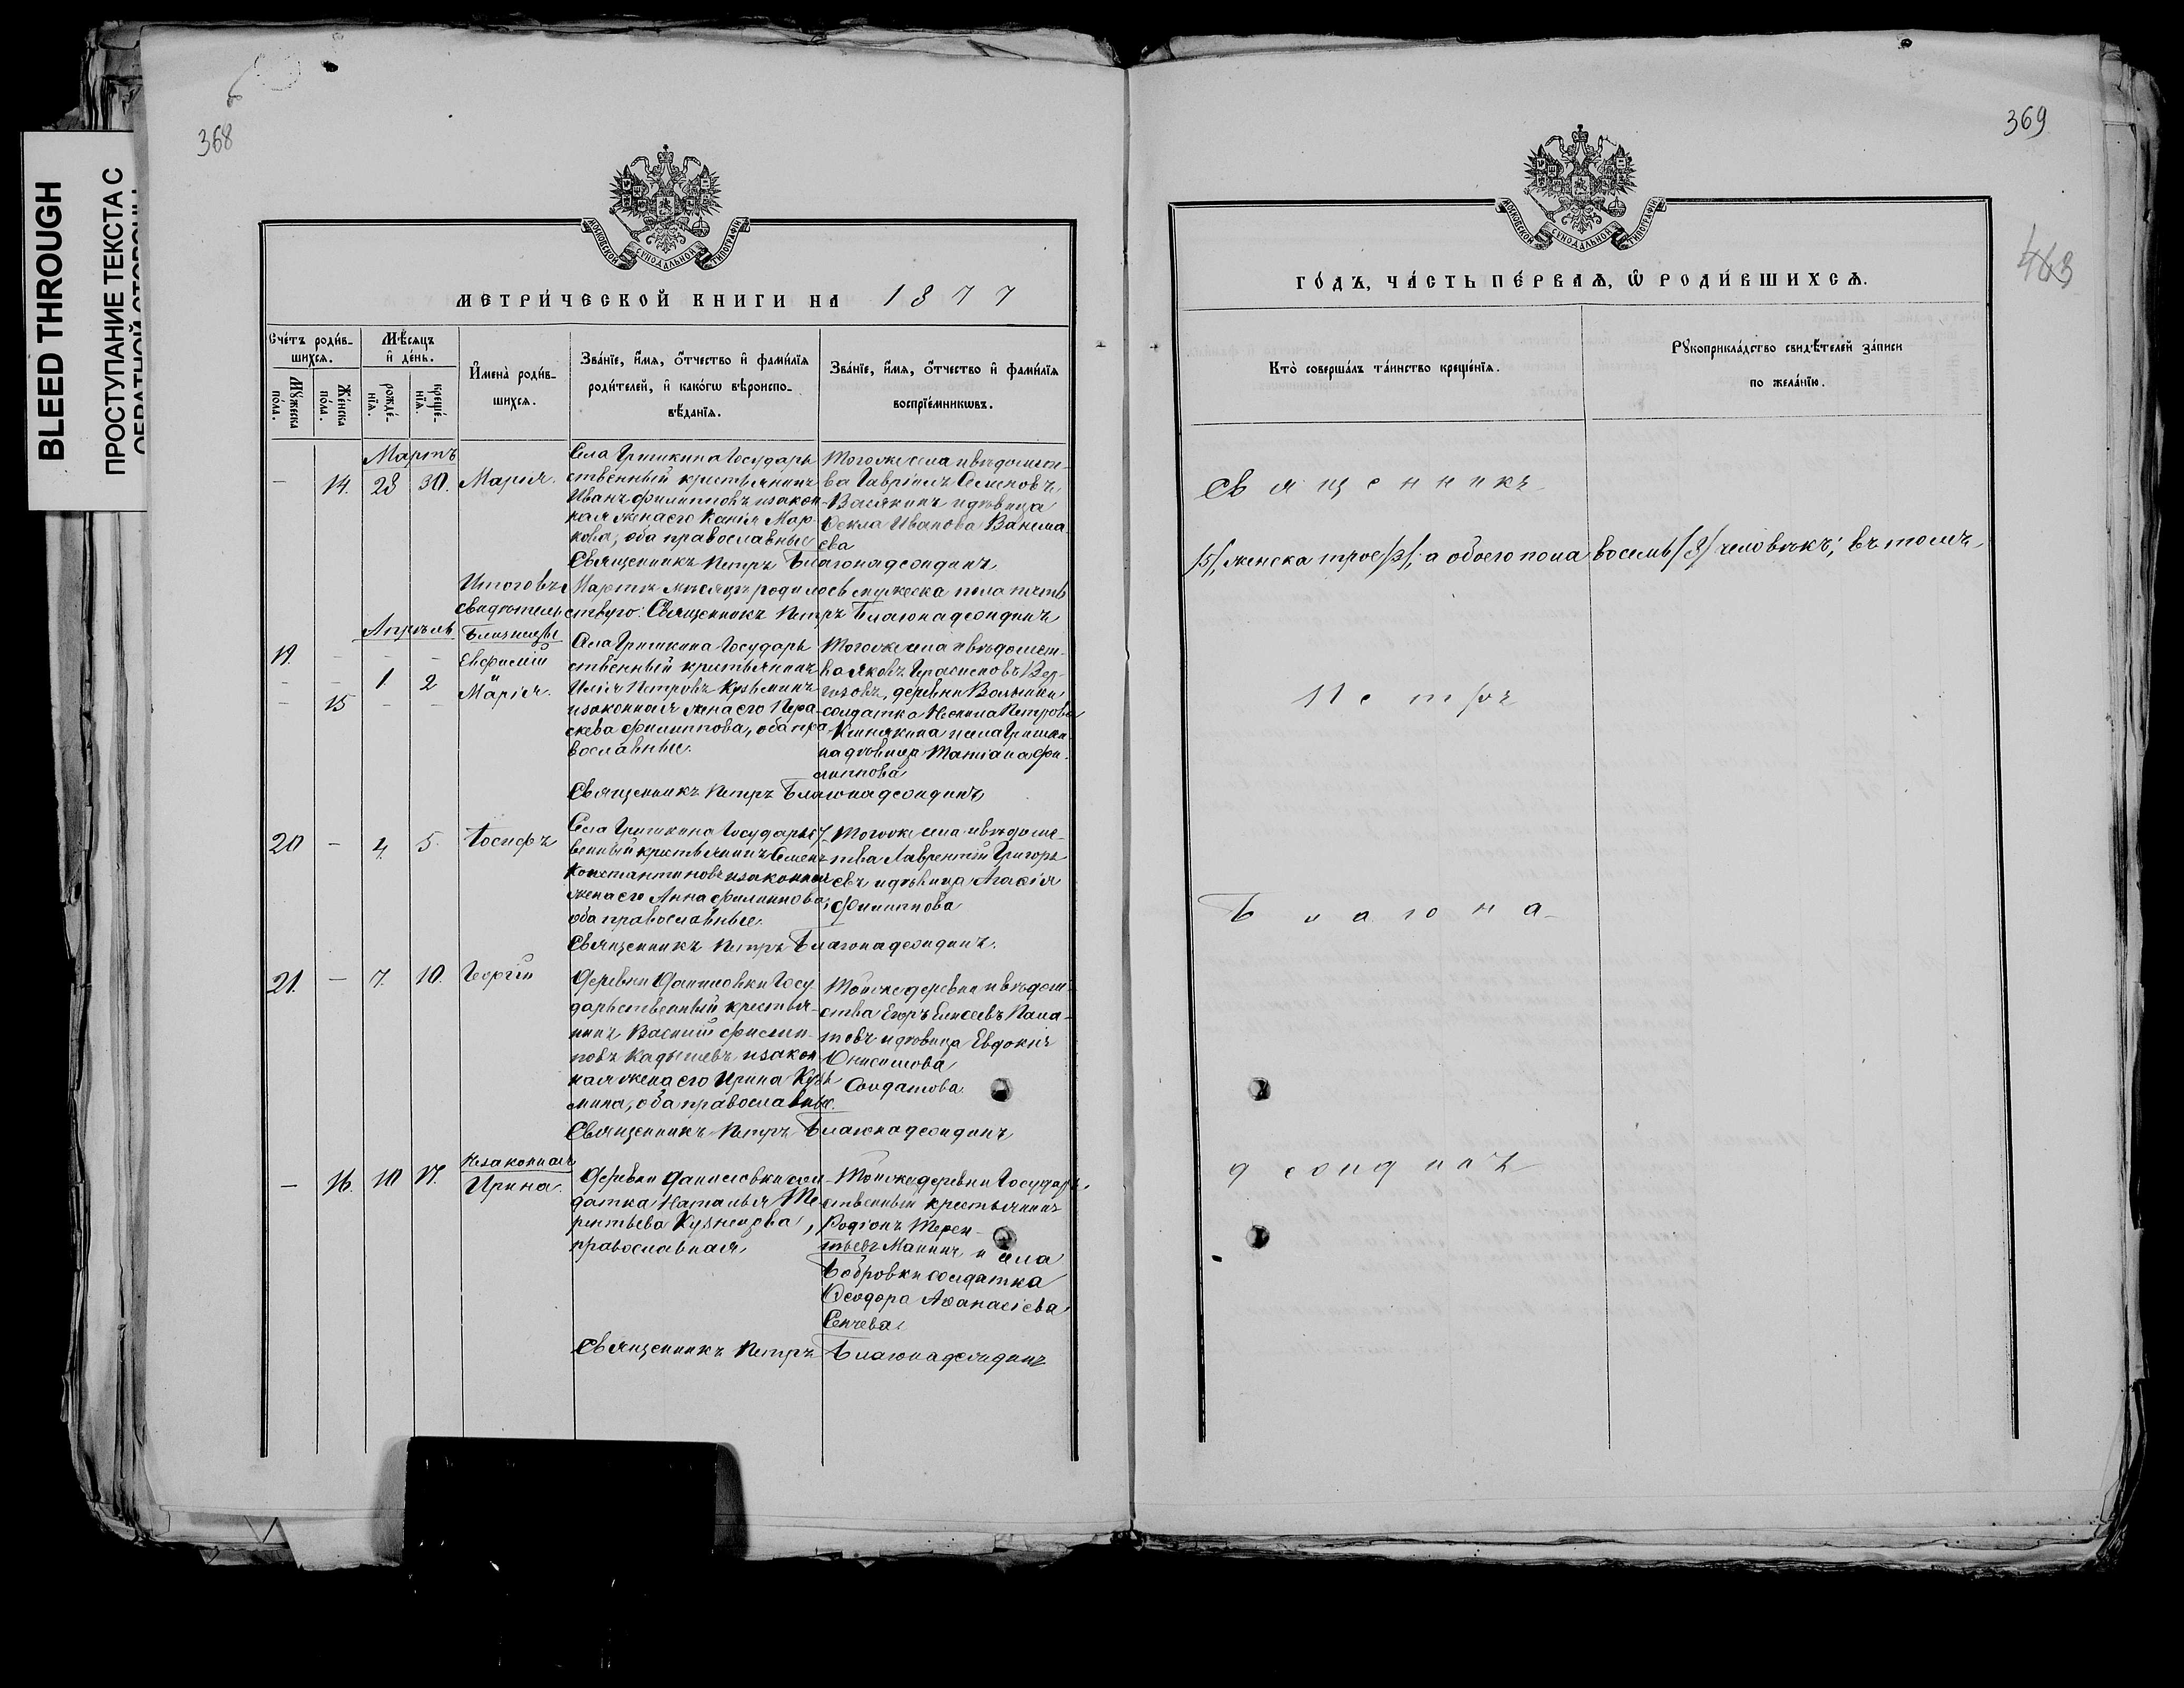 368
BLEED THROUGH
ПРОСТУПАНИЕ ТЕКСТА С
ОБРАТНОЙ СТОРОНЫ
МОСКОВСКОЙ СУНОДАЛЬНОЙ ТИПОГРАФІИ
МЕТРИ́ЧЕСКОЙ КНИГИ НА 1877
Сче́тъ роди́в-
шихсѧ.
Мꙋ́жеска по́ла.
Же́нска по́ла.
Мѣ́сѧцъ
и҆ де́нь.
рожде́-
нїѧ.
креще́-
нїѧ.
И҆мена̀ роди́в-
шихсѧ.
Зва́нїе, и҆́мѧ, ѻ҆́тчество и҆ фами́лїѧ
роди́телей, и҆ како́гѡ вѣроиспо-
вѣ́данїѧ.
Зва́нїе, и҆́мѧ, ѻ҆́тчество и҆ фами́лїѧ
воспрїе́мникѡвъ.
Мартъ
— 14. 28 30. Марія.
Села Гришкина Государь
ственный крестьянинъ
Иванъ Филипповъ и закон
ная жена его Ксенія Мар-
кова, оба православные
Того же села и вѣдомст-
ва Гавріилъ Семеновъ
Васякинъ и дѣвица
Ѳекла Иванова
Священникъ Петръ Благонадеждинъ
Итого въ Мартѣ мѣсяцѣ родилось мужеска пола пять
свидѣтельствую: Священникъ Петръ Благонадеждинъ
Апрѣль
Близнецы
19. — — —
Евфимій
— — 1. 2
и
— 15 — —
Марія.
Села Гришкина Государь
ственный крестьянинъ
Илія Петровъ Кузьминъ
и законная жена его Пара-
скева Филиппова, оба пра-
вославные.
Того же села и вѣдомст-
ва Яковъ Герасимовъ
деревни
солдатка Неонила Петрова
и села Гришки-
на дѣвица Татіана Фи-
липпова
Священникъ Петръ Благонадеждинъ
20 — 4. 5. Іосифъ
Села Гришкина Государст-
венный крестьянинъ Семенъ
Константиновъ и законная
жена его Анна Филиппова,
оба православные.
Того же села и вѣдомс-
тва Лаврентій Григорь
евъ и дѣвица Агаѳія
Филиппова
Священникъ Петръ Благонадеждинъ.
21. — 7. 10. Георгій
Деревни Даниловки Госу-
дарственный крестья-
нинъ Василій Филип-
повъ Кадышевъ и закон
ная жена его Ирина Кузь
мина, оба православные.
Той же деревни и вѣдом-
ства Егоръ Елисеевъ
и дѣвица Евдокія
Онисимова
Солдатова.
Священникъ Петръ Благонадеждинъ
Незаконная
— 16. 10 17. Ирина.
Деревни Даниловки сол-
датка Наталья Те-
рентьева Кузнецова,
православная,
Той же деревни Государ-
ственный крестьянинъ
Родіонъ Терен-
тьевъ Манинъ и села
Бобровки солдатка
Ѳеодора Аѳанасіева
Сенчева.
Священникъ Петръ Благонадеждинъ
369
463
МОСКОВСКОЙ СУНОДАЛЬНОЙ ТИПОГРАФІИ
ГО́ДЪ, ЧА́СТЬ ПЕ́РВАѦ, Ѽ РОДИ́ВШИХСѦ.
Кто̀ соверша́лъ та́инство креще́нїѧ.
Рꙋкоприкла́дство свидѣ́телей за́писи
по жела́нїю.
Священникъ
/5/, женска трое /3/, а обоего пола восемь /8/ человѣкъ; въ томъ
Петръ
Благона-
деждинъ